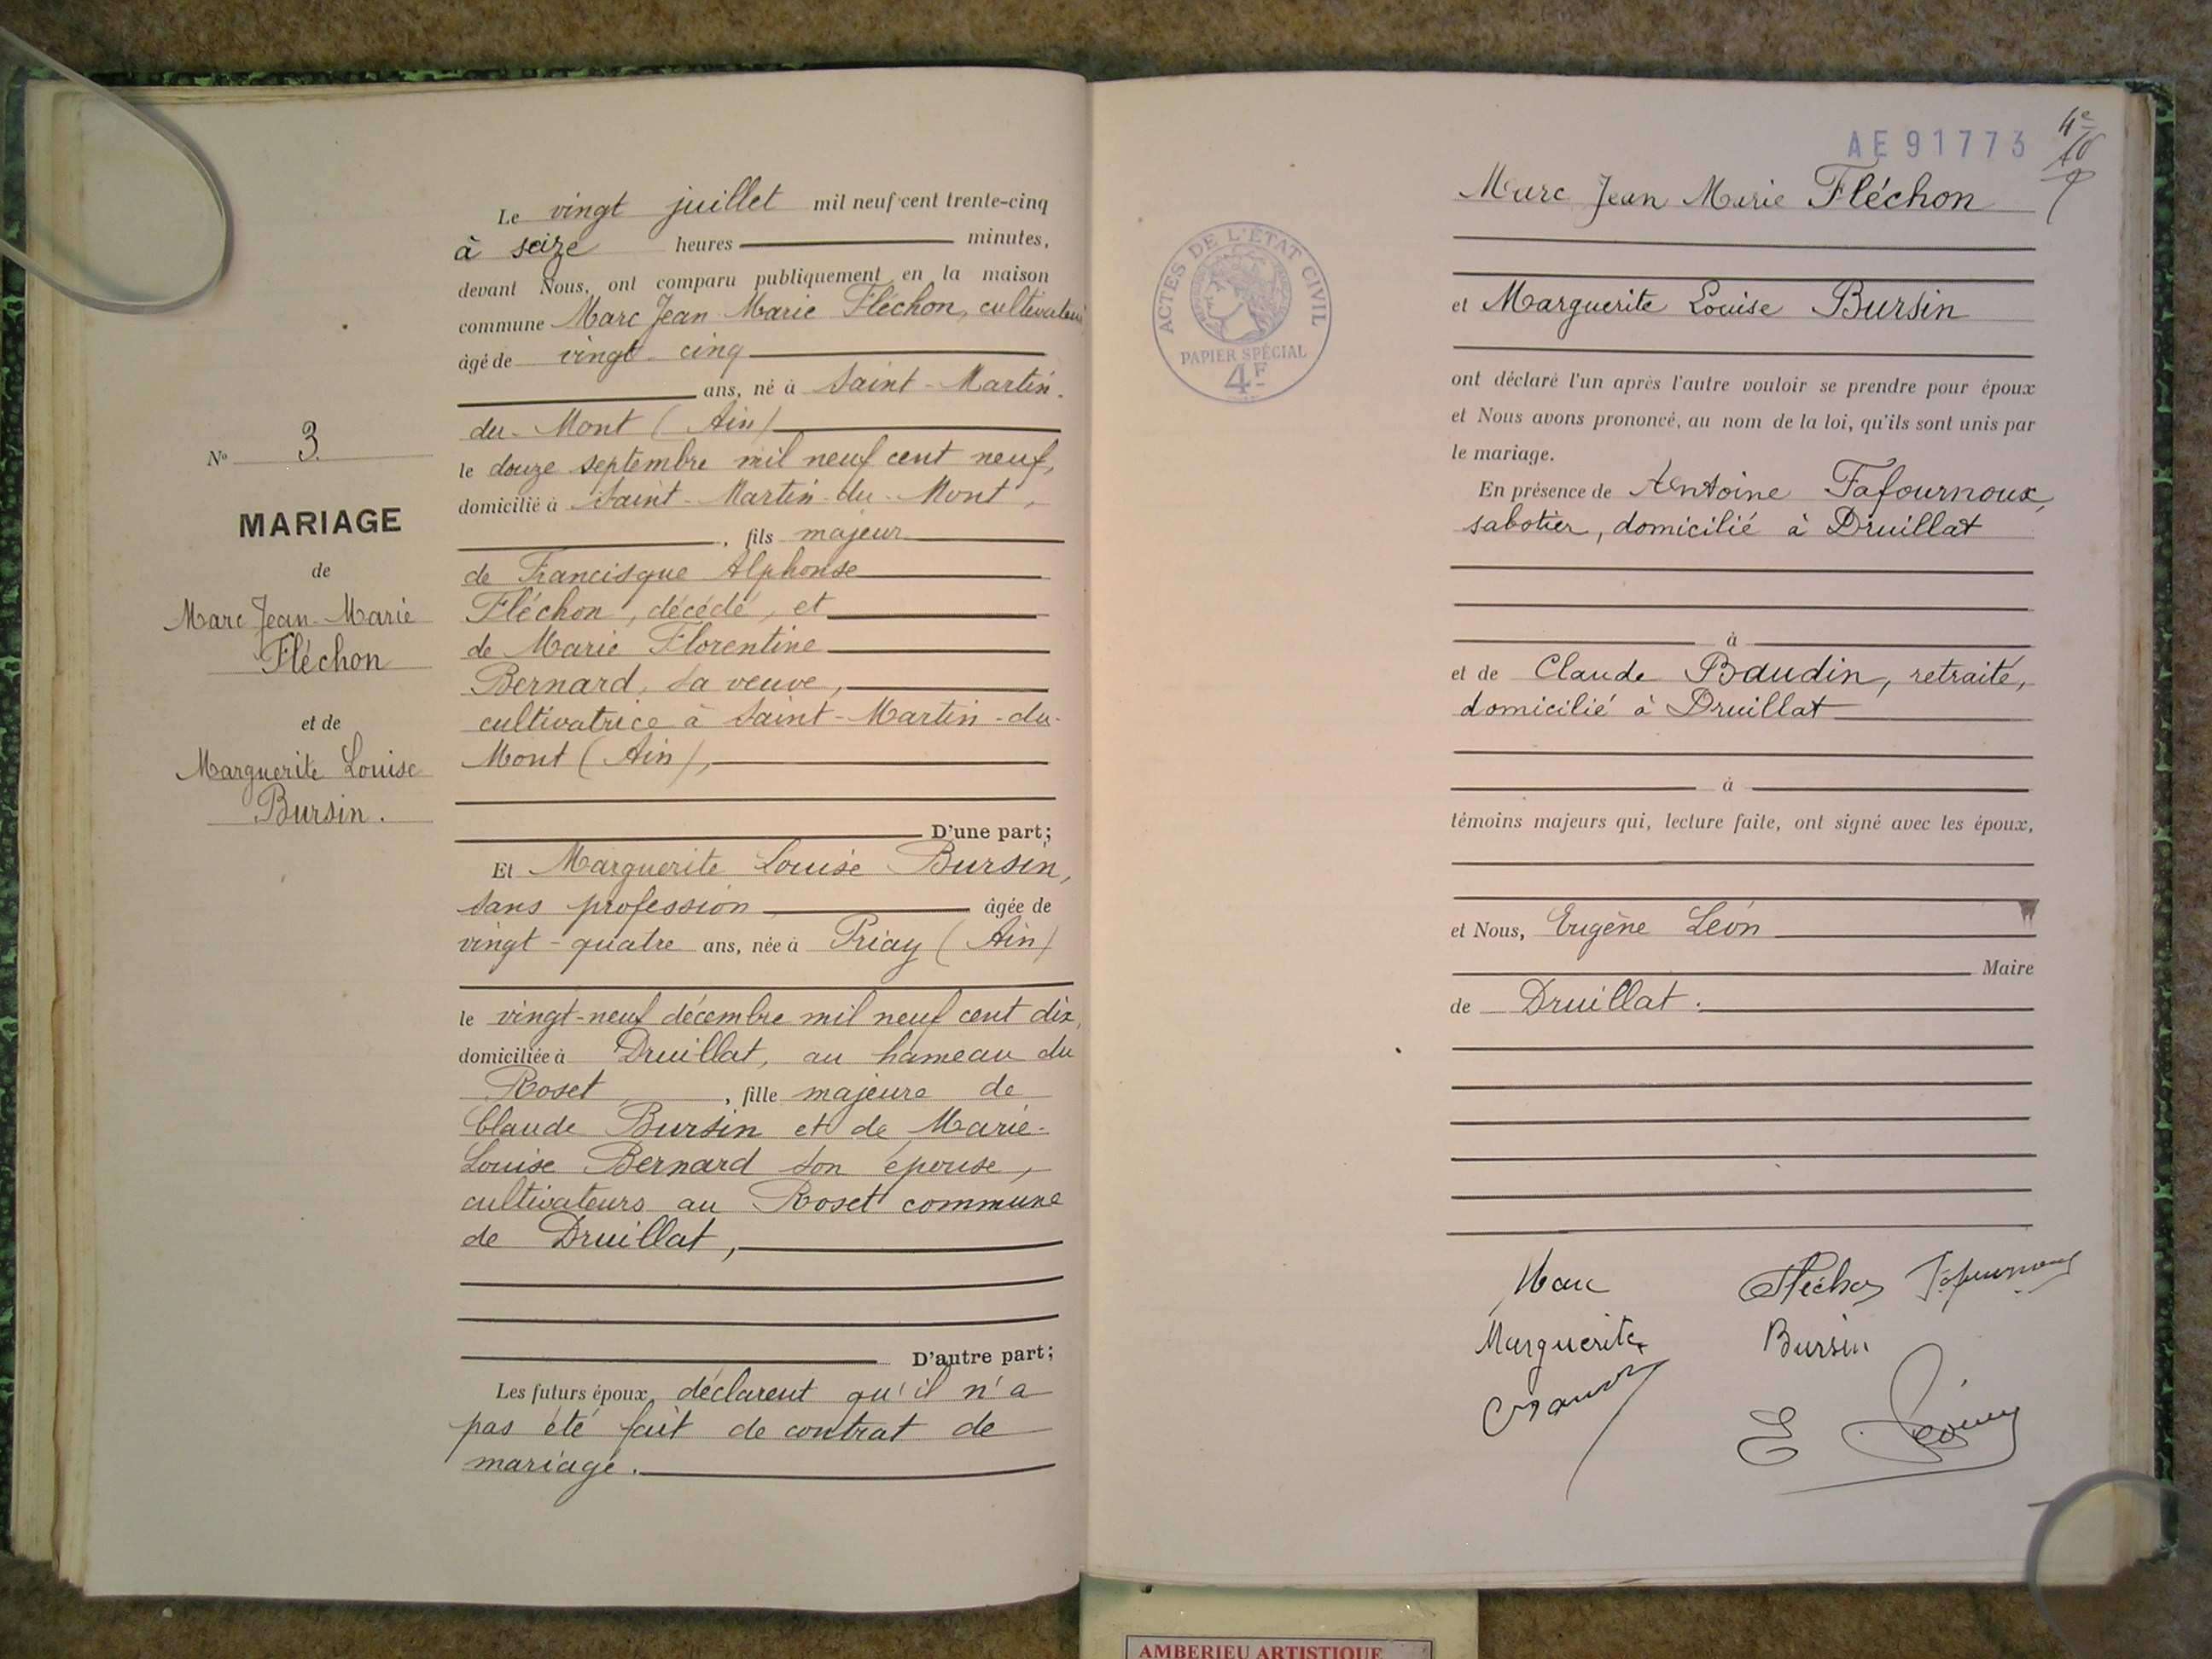 N° 3.
MARIAGE
de
Marc Jean Marie
Fléchon
et de
Marguerite Louise
Bursin.
Le vingt juillet mil neuf cent trente-cinq
à seize heures minutes,
devant Nous, ont comparu publiquement en la maison
commune Marc Jean Marie Fléchon, cultivateur
âgé de vingt-cinq
ans, né à Saint-Martin-
du-Mont (Ain)
le douze septembre mil neuf cent neuf,
domicilié à Saint-Martin-du-Mont,
, fils majeur
de Francisque Alphonse
Fléchon, décédé, et
de Marie Florentine
Bernard, sa veuve,
cultivatrice à Saint-Martin-du-
Mont (Ain),
D'une part;
Et Marguerite Louise Bursin,
sans profession âgée de
vingt-quatre ans, née à Priay (Ain)
le vingt-neuf décembre mil neuf cent dix,
domiciliée à Druillat, au hameau du
Roset, fille majeure de
Claude Bursin et de Marie-
Louise Bernard son épouse,
cultivateurs au Roset commune
de Druillat,
D'autre part;
Les futurs époux déclarent qu'il n'a
pas été fait de contrat de
mariage.
AE 91773
4e
10
ACTES DE L'ÉTAT CIVIL
PAPIER SPÉCIAL
4F
Marc Jean Marie Fléchon
et Marguerite Louise Bursin
ont déclaré l'un après l'autre vouloir se prendre pour époux
et Nous avons prononcé, au nom de la loi, qu'ils sont unis par
le mariage.
En présence de Antoine Fafournoux,
sabotier, domicilié à Druillat
à
et de Claude Baudin, retraité,
domicilié à Druillat
à
témoins majeurs qui, lecture faite, ont signé avec les époux,
et Nous, Eugène Léon
Maire
de Druillat.
Marc Fléchon Fafournoux
Marguerite Bursin
E
AMBERIEU ARTISTIQUE